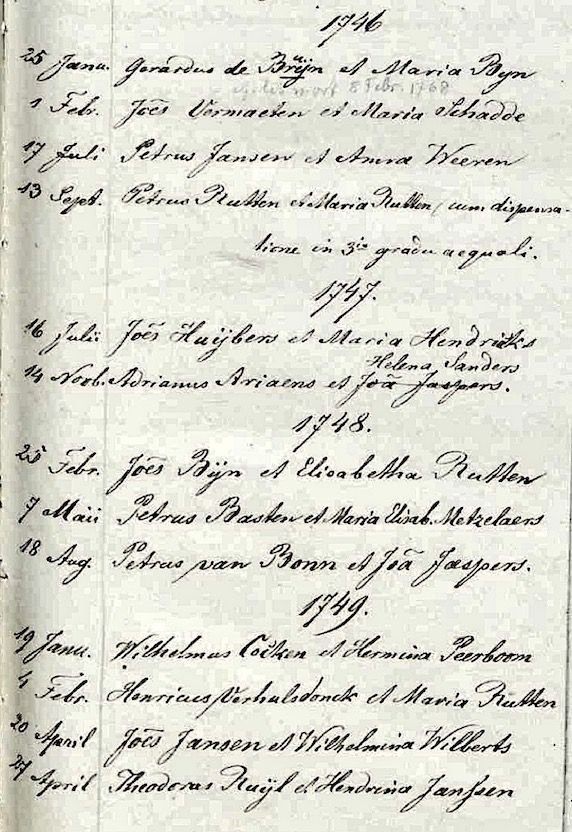 1746
25 Janu. Gerardus de Bruijn et Maria Byn
mort 8 Febr. 1768
1 Febr. Joēs Vermaeten et Maria Schadde
17 Juli Petrus Jansen et Anna Weeren
13 Sept. Petrus Rutten et Maria Rutten, cum dispensa-
tione in 3io gradu aequali.
1747.
16 Julii Joēs Huijbers et Maria Hendriks
Helena Sanders
14 Novb. Adrianus Ariaens et Joā Jaspers.
1748.
25 Febr. Joēs Bijn et Elisabetha Rutten
7 Maii Petrus Basten et Maria Elisab. Metzelaers
18 Aug. Petrus van Bonn et Joā Jaspers.
1749.
19 Janu. Wilhelmus Coëken et Hermina Peerboom
4 Febr. Henricus Verhulsdonck et Maria Rutten
20 April Joēs Jansen et Wilhelmina Wilberts
27 April Theodorus Ruijl et Hendrina Janssen